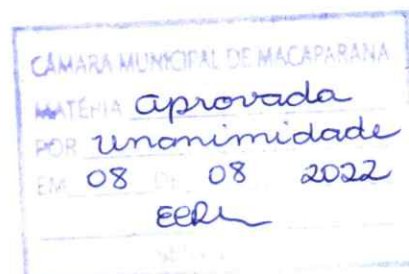 CÂMARA MUNICIPAL DE MACAPARANA
MATÉRIA aprovada
POR unanimidade
EM 08 DE 08 2022